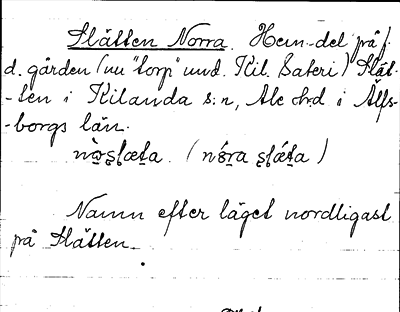 Slätten Norra. Hem-del på f.
d. gården (nu "torp" und. Kil. Säteri) Slät-
-ten i Kilanda s:n, Ale hrd i Älfs-
-borgs län.
(nóra
Namn efter läget nordligast
på Slätten